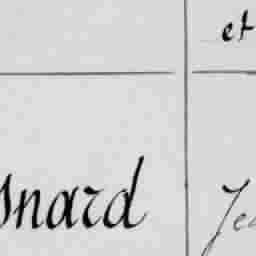 et
snard
Je